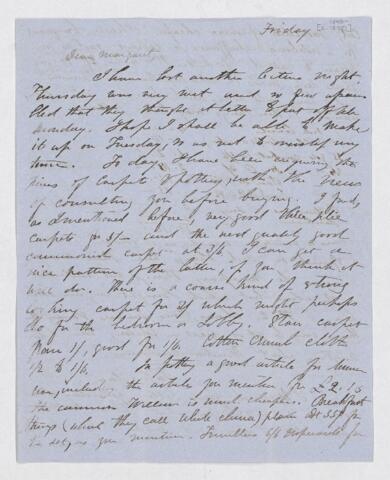 Friday
Dear Margaret,
I have lost another lecture night
Thursday was very wet and so few assem
bled that they thought it better to put off till
Monday. I hope I shall be able to make
it up on Tuesday, so as not to my
time. To day I have been enquiring the
prices of carpet & pottery, with the view
of consulting you before buying. I find,
as I mentioned before, very good three plie
carpets for 3/- and the next quality good
carpet at 2/6. I can get a
nice pattern of the latter, if you think it
will do. There is a coarse kind of strong
looking carpet for 2/ which might perhaps
do for the bedroom or Lobby. Stair carpet
from 1/, good for 1/6. Cotton crumb cloth
1/2 to 1/6. In pottery a good article for dinner
including the article you mention for £2.15
the common Willow is much cheaper. Breakfast
things (what they call white china) plain at 35/ for
the set, as you mention. Tumblers 6/6 for